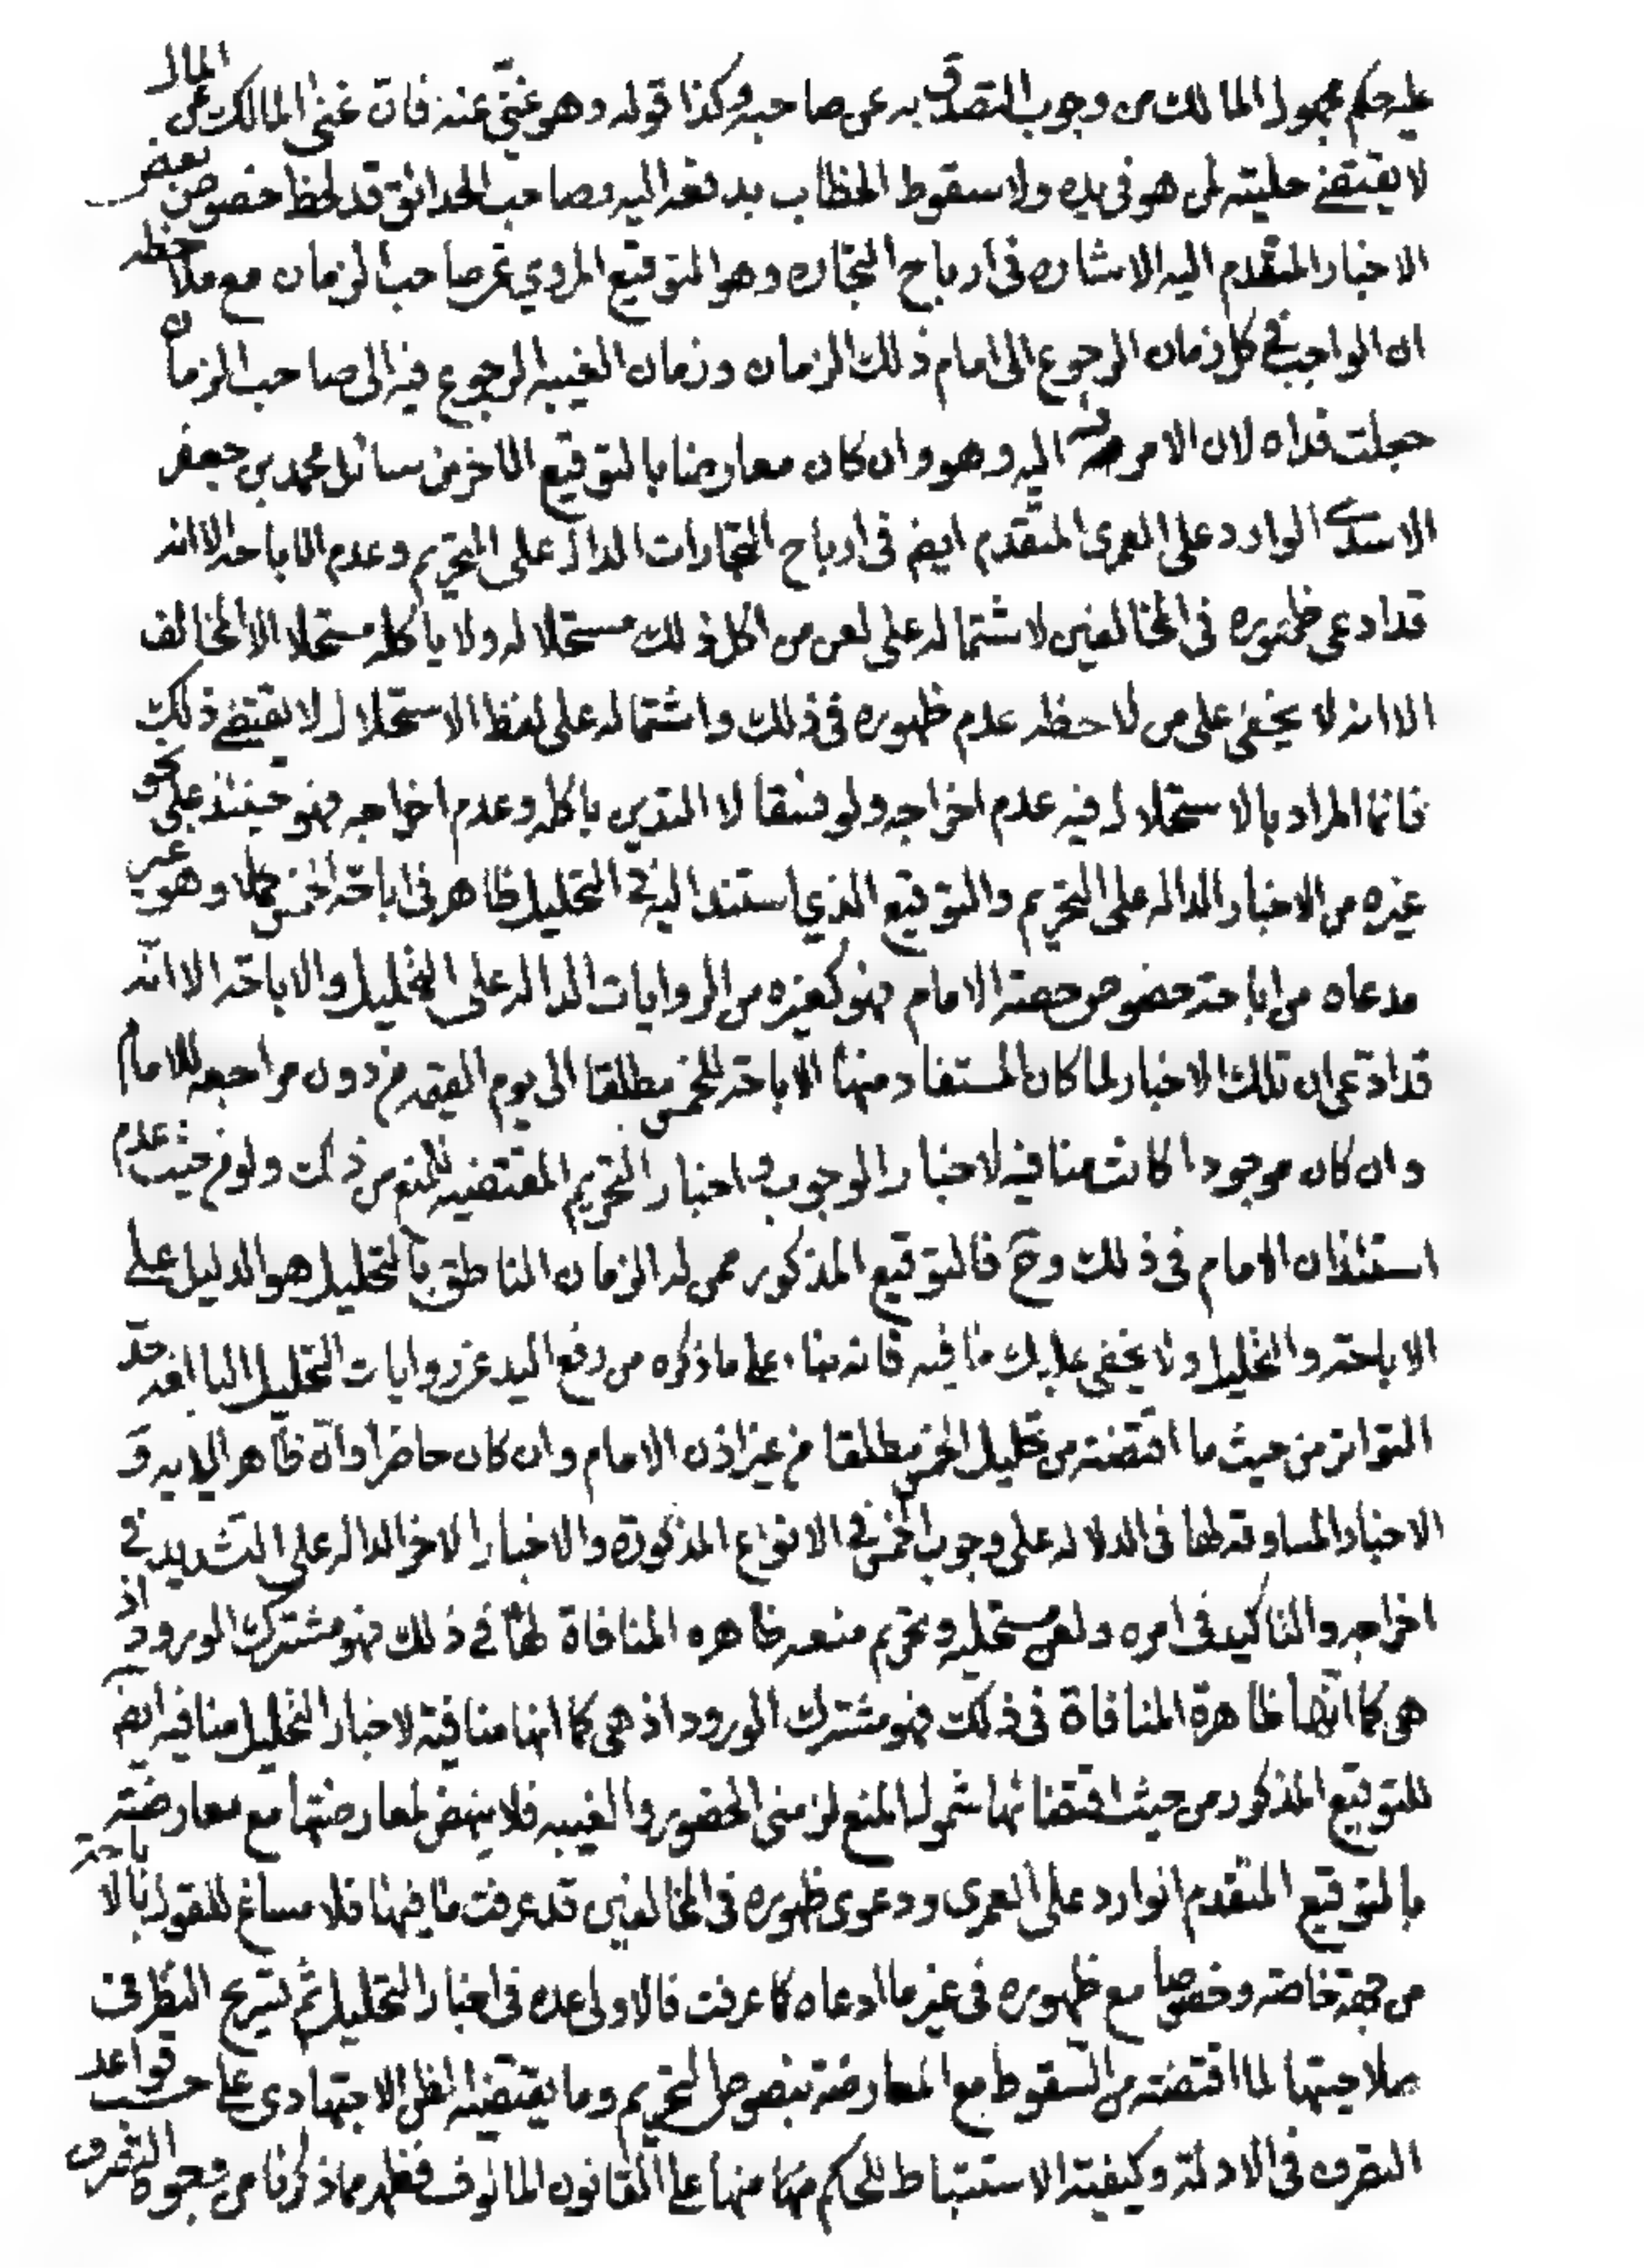 عليه حكم مجهول المالك من وجوب التصدق به عن صاحبه وكذا قوله وهو غني عنه فان غنى المالك عن المال
لا يقتضي حليته لمن هو في يده ولا سقوط الخطاب بدفعه اليه وصاحب الحدائق قد لحظ خصوص بعض
الاخبار المتقدم اليه الاشاره في ارباح التجاره وهو التوقيع المروي عن صاحب الزمان مع ملاحظه
ان الواجب في كل زمان الرجوع الى امام ذلك الزمان وزمان الغيبه الرجوع فيه الى صاحب الزمان
جعلت فداه لان الامر اليه وهو وان كان معارضا بالتوقيع الاخر من مسائل محمد بن جعفر
الاسدي الوارد على العمري المتقدم ايضر في ارباح التجارات الدال على التحريم وعدم الاباحه الا انه
قد ادعى ظهوره في المخالفين لاشتماله على لعن من اكل ذلك مستحلا له ولا ياكله مستحلا الا المخالف
الا انه لا يخفى على من لاحظه عدم ظهوره في ذلك واشتماله على لفظ الاستحلال لا يقتضي ذلك
فانما المراد بالاستحلال فيه عدم اخراجه ولو فسقا لا التدين باكله وعدم اخراجه فهو حينئذ على نحو
غيره من الاخبار الداله على التحريم والتوقيع الذي استند اليه في التحليل ظاهر في اباحة الخمس كملا وهو غير
مدعاه من اباحة خصوص حصة الامام فهو كغيره من الروايات الداله على التحليل والاباحة الا انه
قد ادعى ان تلك الاخبار لما كان المستفاد منها الاباحة للخمس مطلقا الى يوم القيمه من دون مراجعه للامام
وان كان موجودا كانت منافيه لاخبار الوجوب واخبار التحريم المقتضيه للمنع من ذلك ولو من حيث عدم
استئذان الامام في ذلك وح فالتوقيع المذكور ممن له الزمان الناطق بالتحليل هو الدليل على
الاباحة والتحليل ولا يخفى عليك ما فيه فانه بناء على ما ذكره من رفع اليد عن روايات التحليل البالغه حد
التواتر من حيث ما اقتضته من تحليل الخمس مطلقا من غير اذن الامام وان كان حاضرا وان ظاهر الايه و
الاخبار المساوقه لها في الدلاله على وجوب الخمس في الانواع المذكورة والاخبار الاخر الداله على التشديد في
اخراجه والتاكيد في امره ولعن مستحليه وتحريم منعه ظاهره المنافاة لها في ذلك فهو مشترك الورود اذ
هي كما انها ظاهرة المنافاة في ذلك فهو مشترك الورود اذ هي كما انها منافية لاخبار التحليل منافيه ايضر
للتوقيع المذكور من حيث اقتضائها شمول المنع لزمني الحضور والغيبه فلا ينهض لمعارضتها مع معارضته
بالتوقيع المتقدم الوارد على العمري ودعوى ظهوره في المخالفين قد عرفت ما فيها فلا مساغ للقول بالاباحة
من جهته خاصة وخصوصا مع ظهوره في غير ما ادعاه كما عرفت فالاولى عده في اخبار التحليل ثم تسريح النظر في
صلاحيتها لما اقتضته من السقوط مع المعارضة بنصوص التحريم وما يقتضيه النظر الاجتهادي على حسب قواعد
التصرف في الادلة وكيفية الاستنباط للحكم منها على القانون المالوف فظهر مما ذكرنا من وجوه التصرف